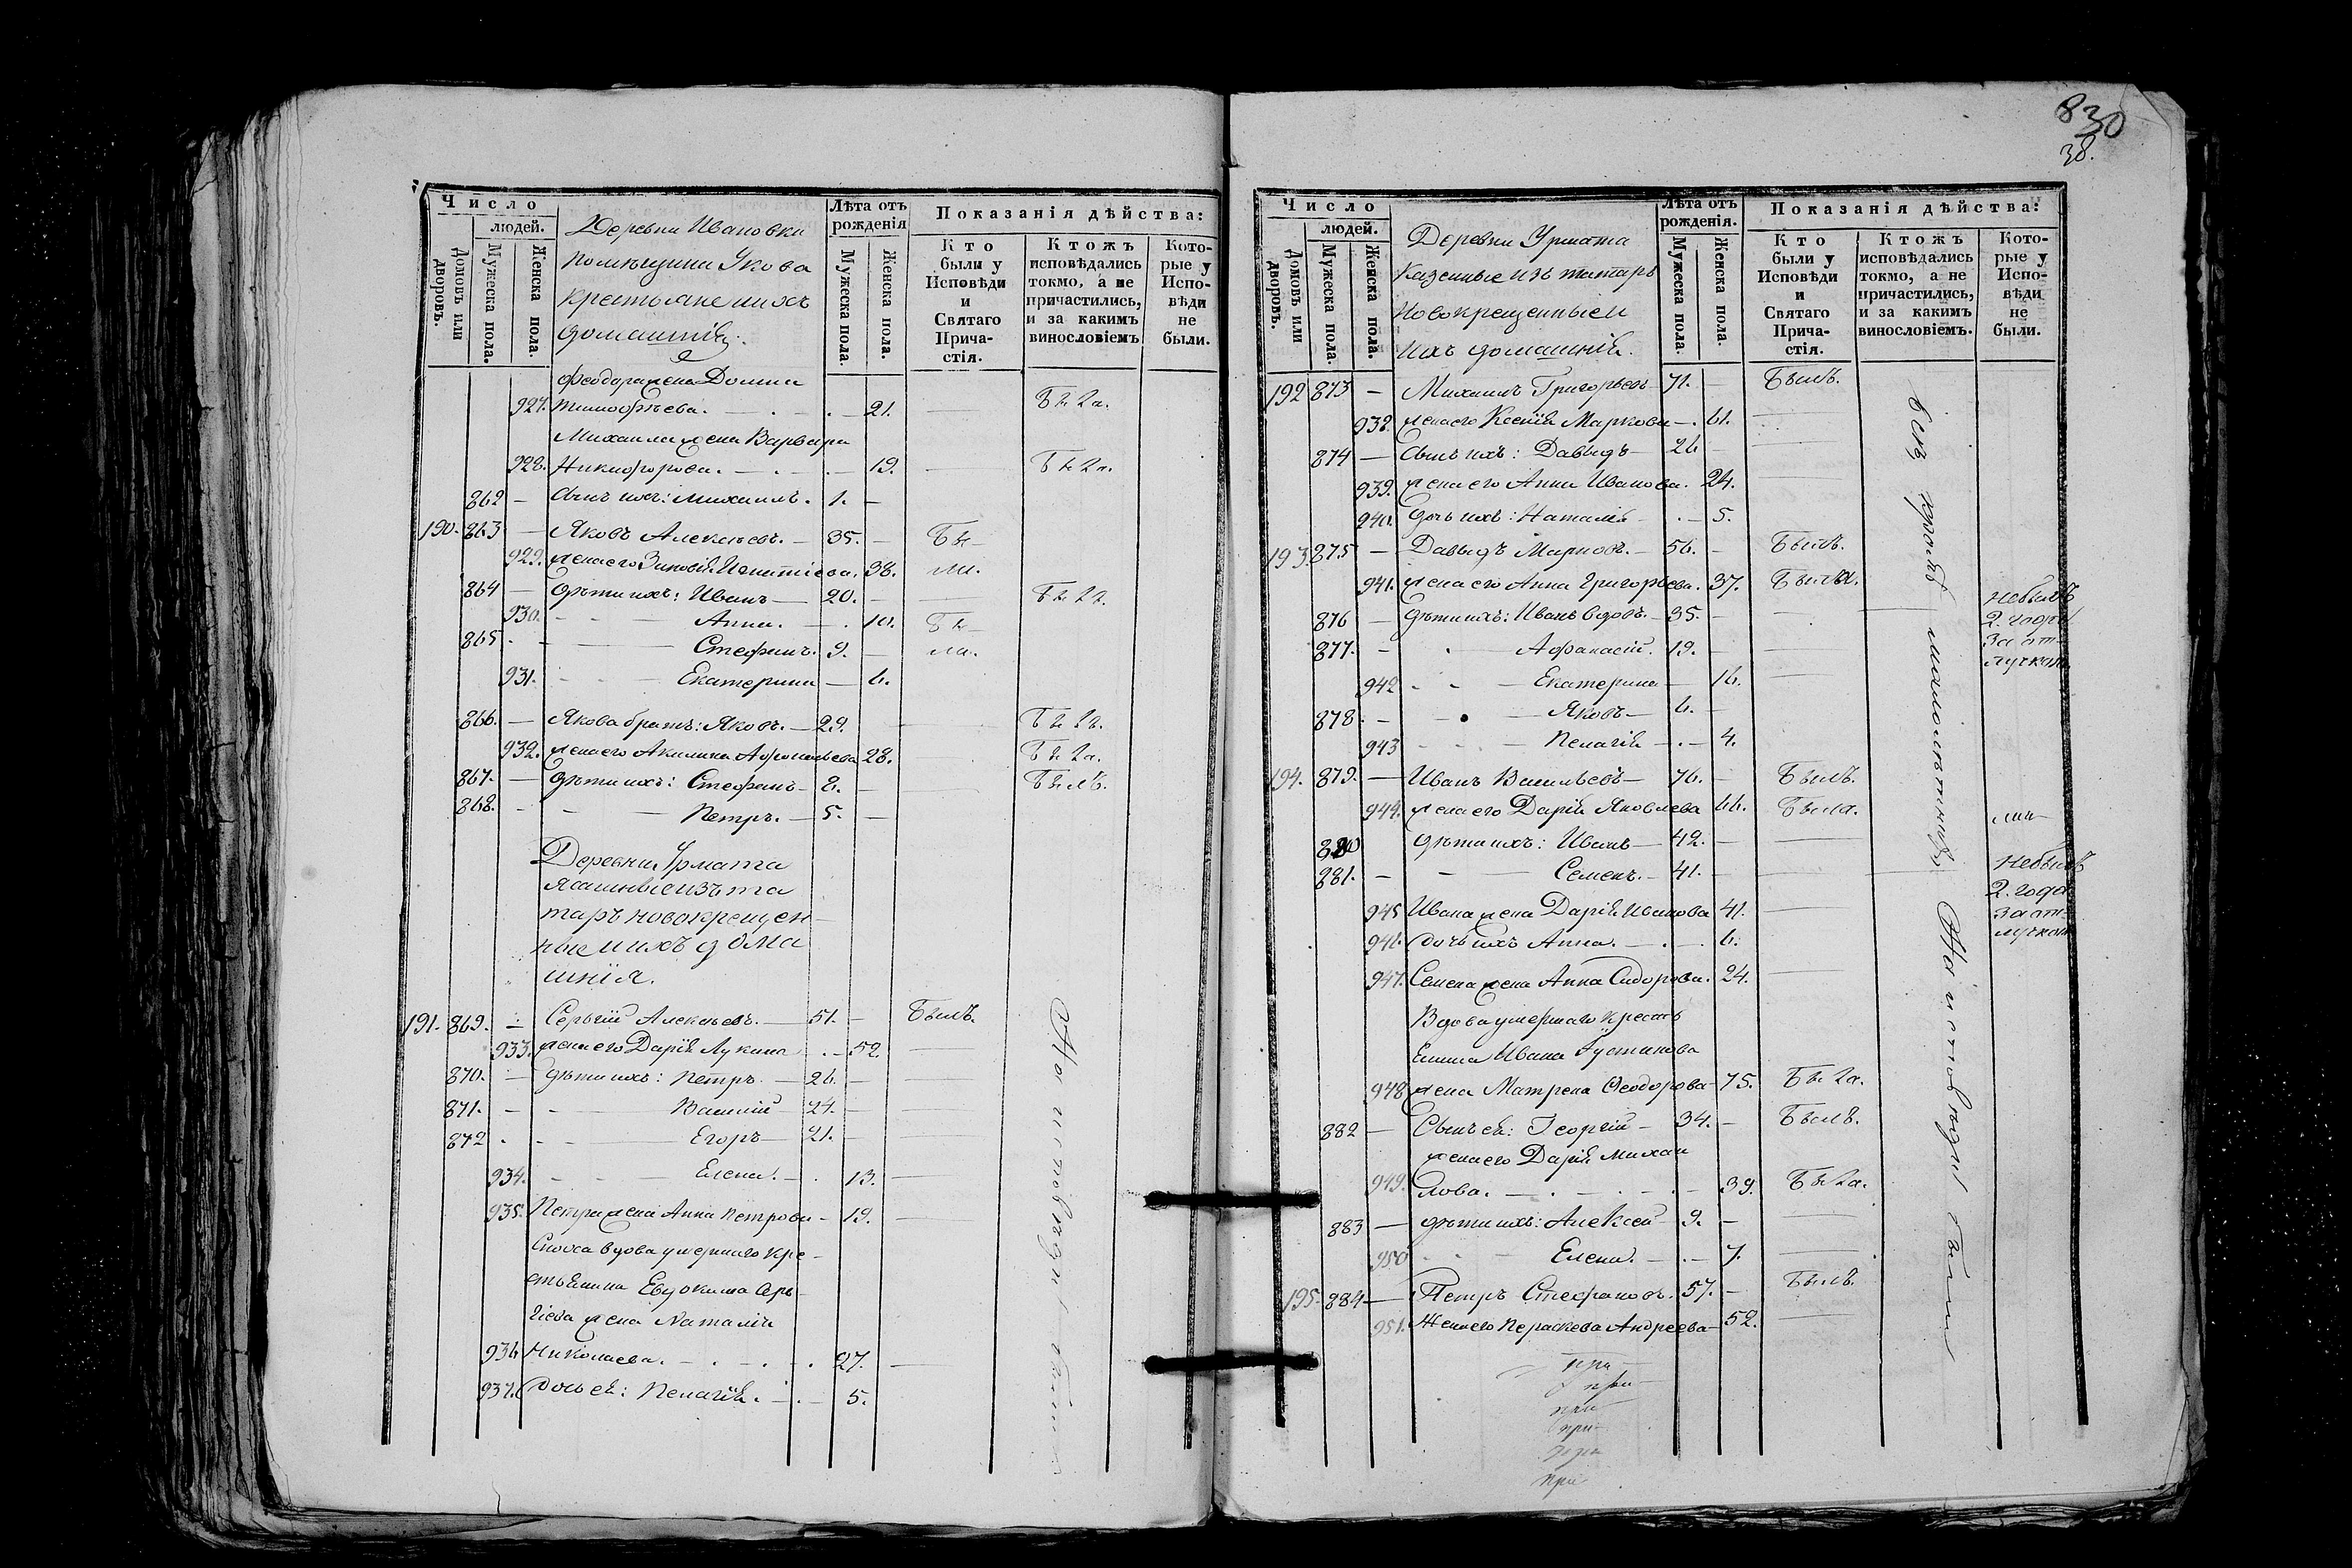 Число
людей.
Домовъ или дворовъ.
Мужеска пола.
Женска пола.
Деревни Ивановки
помѣщика Укова
крестьяне и ихъ
домашнія.
Лѣта отъ рожденія
Мужеска пола
Женска пола.
Показанія дѣйства:
Кто были у Исповѣди и Святаго Прича-стія.
Ктожъ исповѣдались токмо, а не причастились, и за какимъ винословіемъ
Кото-рые у Испо-вѣди не были.
Феодора жена Домна
927. Тимофѣева. — 21. Была.
Михаила жена Варвара
928. Никифорова. — 19. Была.
862 — Сынъ ихъ: Михаилъ. 1. —
190. 863 — Яковъ Алексѣевъ. — 35. — Бы-
929. жена его Зиновія Игнатіева. 38. ли.
864 — Дѣти ихъ: Иванъ — 20. — Былъ.
930. — Анна. — 10. Бы-
865. — Стефанъ. 9. — ли.
931. — Екатерина — 6.
866. — Якова братъ: Яковъ. — 29. Былъ.
932. жена его Акилина Афонасьева 28. Была.
867. — Дѣти ихъ: Стефанъ — 8. — Былъ.
868. — Петръ. — 5. —
Деревни Урмата
ясашные изъ та
таръ новокрещен
ные и ихъ дома
шнія.
191. 869. — Сергій Алексѣевъ. — 51. — Былъ.
933. жена его Дарія Лукина — 52. —
870. — Дѣти ихъ: Петръ. — 26. —
871. — Василій 24. —
872 — Егоръ — 21. —
934. — Елена. — 13. —
935. Петра жена Анна Петрова — 19. —
Сноха вдова умершаго кре-
стьянина Евдокима Сер-
гіева жена Наталія
936 Николаева. — 27. —
937. Дочь ея: Пелагія. — 5.
На исповѣди были
830
38.
Число
людей.
Домовъ или дворовъ.
Мужеска пола.
Женска пола.
Деревни Урмата
казенные изъ татаръ
новокрещенные и
ихъ домашнія.
Лѣта отъ рожденія.
Мужеска пола.
Женска пола.
Показанія дѣйства:
Кто были у Исповѣди и Святаго Прича-стія.
Ктожъ исповѣдались токмо, а не причастились, и за какимъ винословіемъ.
Кото-рые у Испо-вѣди не были.
192 873 — Михаилъ Григорьевъ 71. — Былъ.
938. жена его Ксенія Маркова — 61. —
874 — Сынъ ихъ: Давыдъ — 26 — —
939. жена его Анна Иванова. 24. —
940. Дочь ихъ: Наталія — 5.
193 875 — Давыдъ Марковъ. — 56. — Былъ.
941. жена его Анна Григорьева. 37. Была.
876 — Дѣти ихъ: Иванъ вдовъ. — 35. — небылъ
2. года
за от-
лучкою.
877. — Афанасій. 19. — —
942 — Екатерина — 16. —
878. — Яковъ — 6. —
943 — Пелагія — 4.
194. 879. — Иванъ Васильевъ — 76. — Былъ.
944. жена его Дарія Яковлева 66. Была.
880 Дѣти ихъ: Иванъ — 42. — —
881. — Семенъ. — 41. — небылъ
2. года
за от-
лучкою
945 Ивана жена Дарія Иванова 41. —
946. Дочь ихъ Анна. — 6.
947. Семена жена Анна Сидорова. 24. —
Вдова умершаго кресть
янина Ивана Густинова
948 жена Матрена Феодорова — 75. Была.
882 — Сынъ ея: Георгій — 34. — Былъ.
жена его Дарія Михаи
949. лова. — 39. Была.
883 — Дѣти ихъ: Алексѣй 9. — —
950 — Елена. — 7. —
195. 884 — Петръ Стефановъ. 57. — Былъ.
951. Жена его Параскева Андреева — 52. —
всѣ кромѣ малолѣтнихъ На исповѣди были
при
при
при
при
при